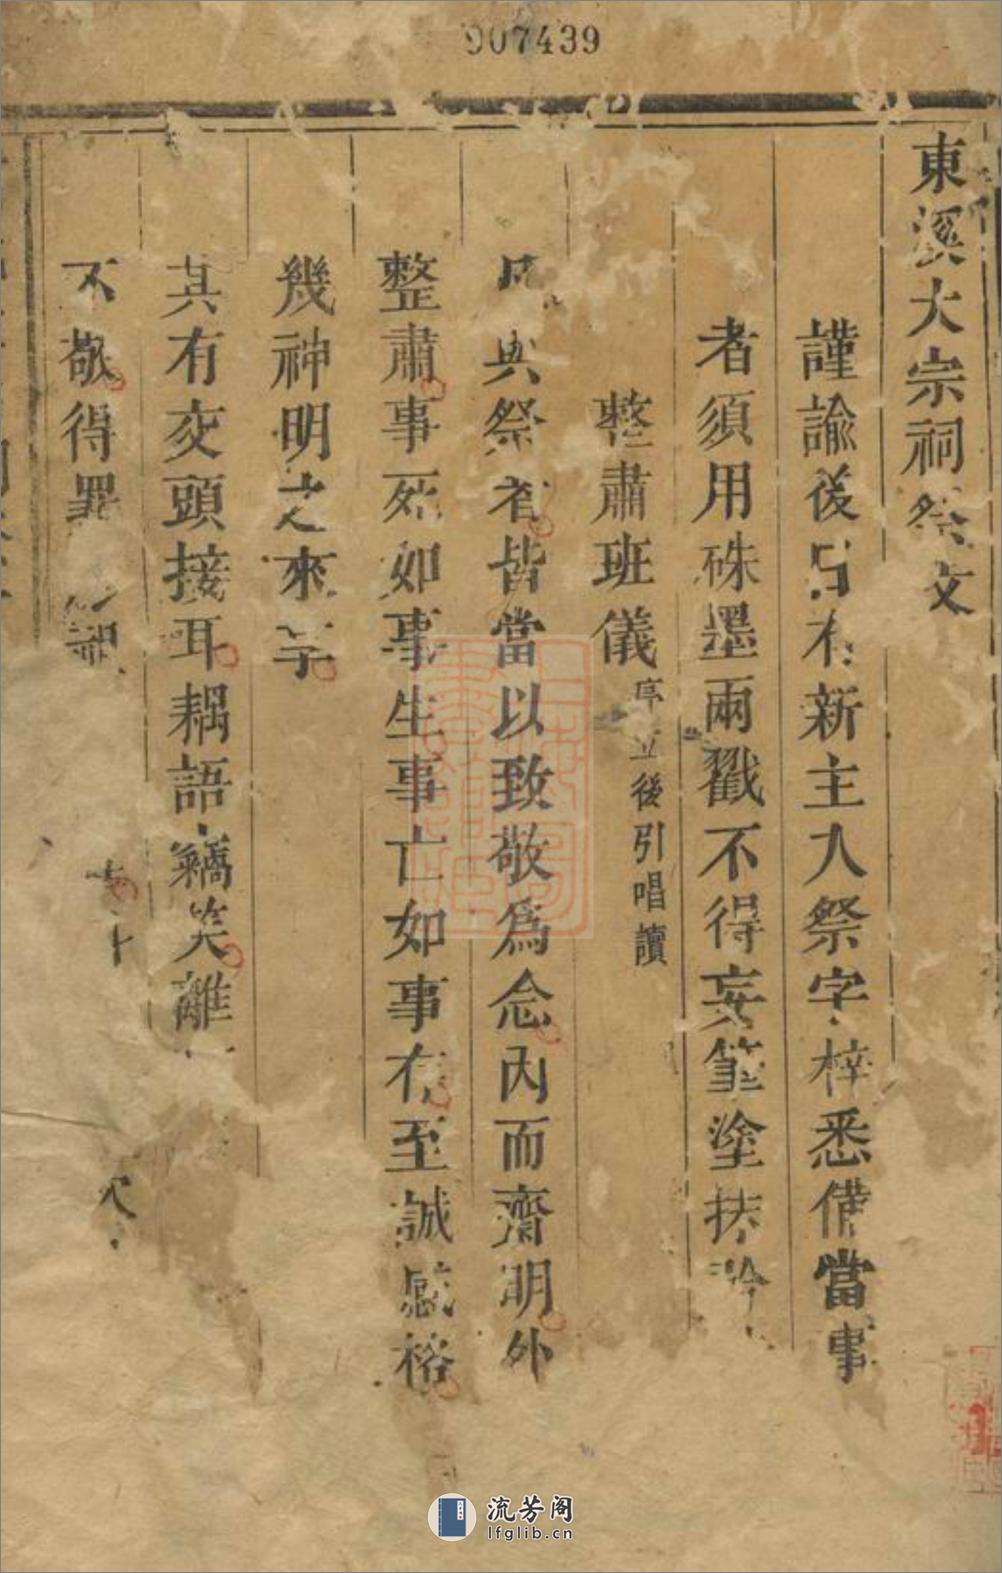 907439
東溪大宗祠祭文
謹諭後日有新主入祭字梓悉備當事
者須用硃墨兩戳不得妄筆塗抹
整肅班儀序立後引唱讀
凡與祭者皆當以致敬為念內而齋明外
整肅事死如事生事亡如事存至誠感格
幾神明之來享
其有交頭接耳耦語竊笑離
不敬得罪
流芳阁
lfglib.cn